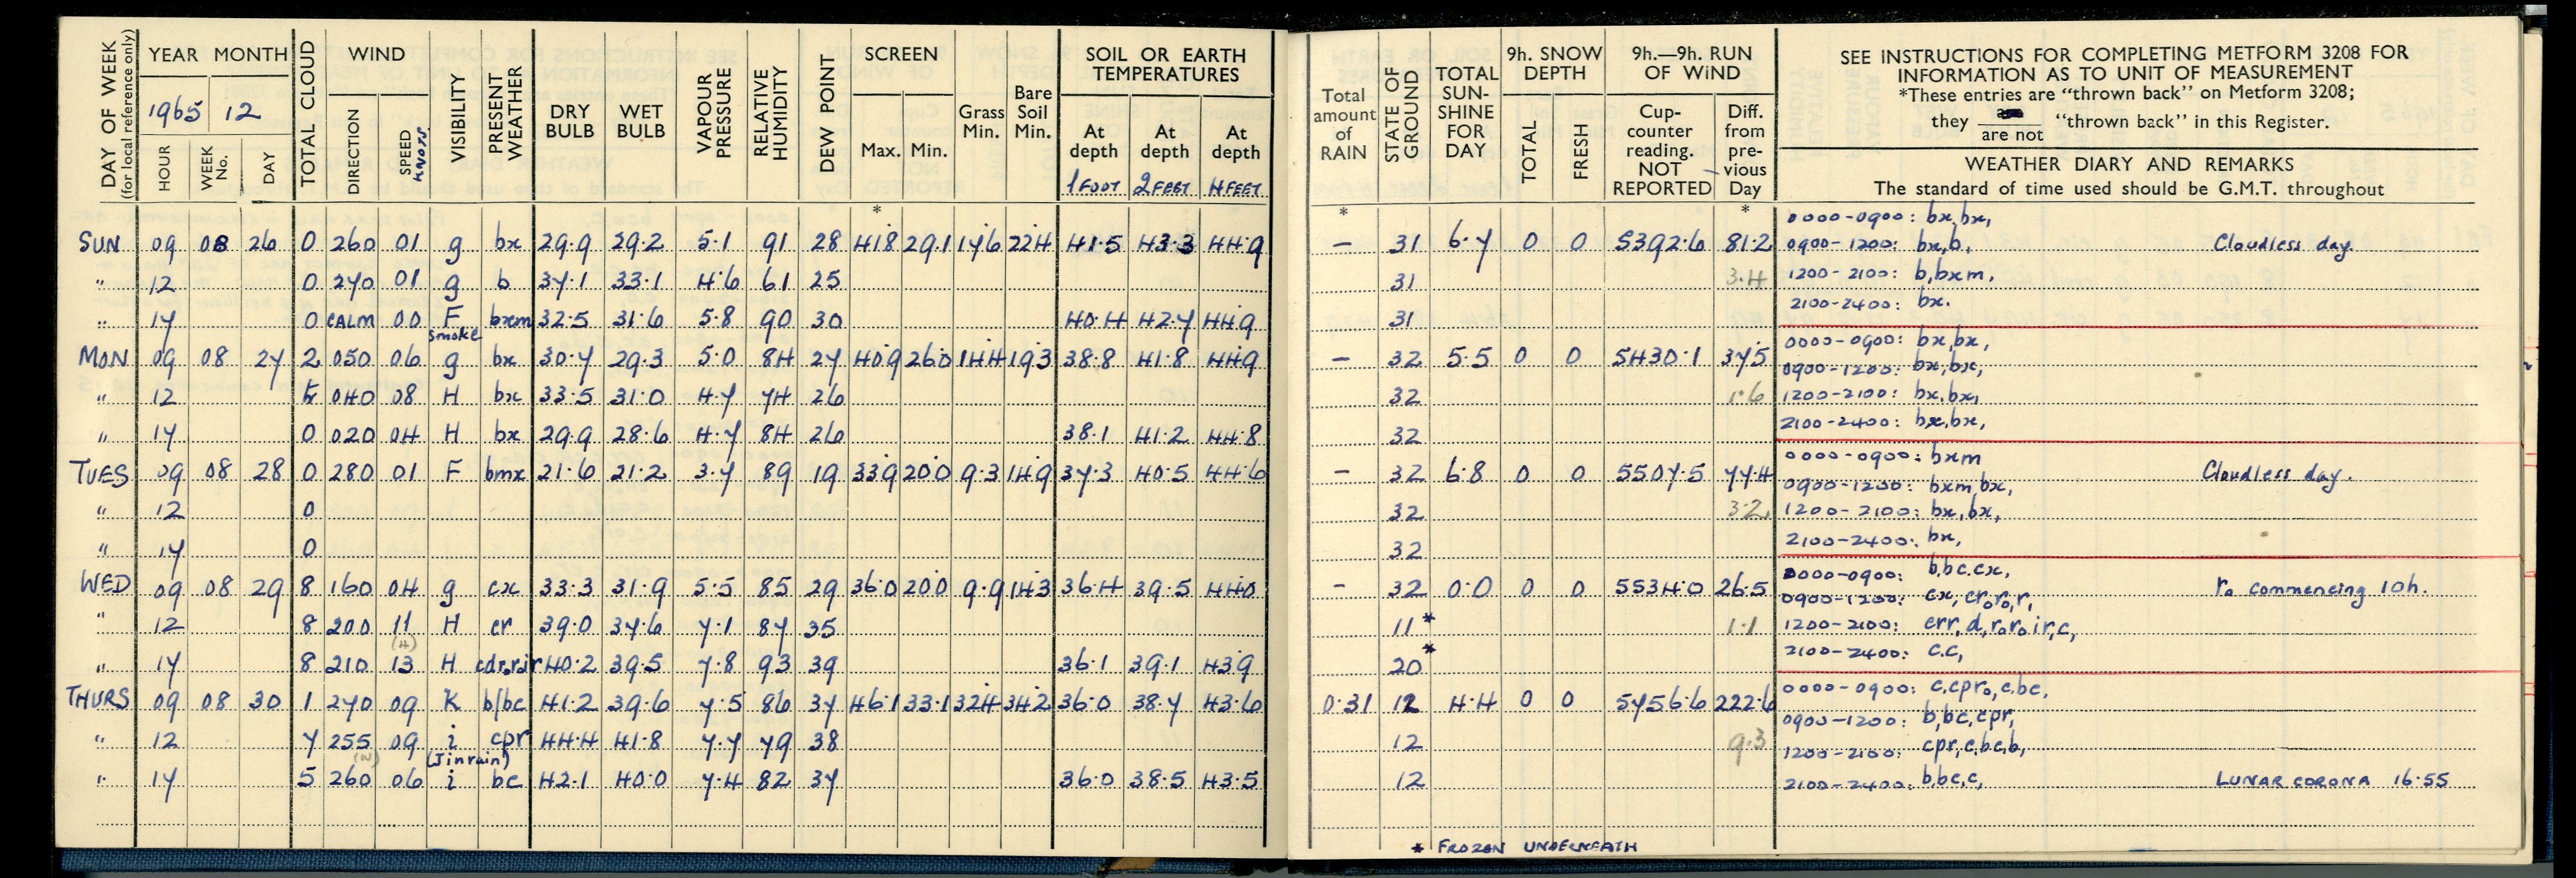 DAY OF WEEK (for local reference only)
YEAR MONTH
1965 12
HOUR WEEK No. DAY
TOTAL CLOUD
WIND
DIRECTION SPEED KNOTS
VISIBILITY
PRESENT WEATHER
DRY BULB
WET BULB
VAPOUR PRESSURE
RELATIVE HUMIDITY
DEW POINT
SCREEN
Max. Min.
Grass Min.
Bare Soil Min.
SOIL OR EARTH TEMPERATURES
At depth 1 FOOT
At depth 2 FEET
At depth 4 FEET
Total amount of RAIN
STATE OF GROUND
TOTAL SUN-SHINE FOR DAY
9h. SNOW DEPTH
TOTAL FRESH
9h.—9h. RUN OF WIND
Cup-counter reading. NOT REPORTED
Diff. from pre-vious Day
SEE INSTRUCTIONS FOR COMPLETING METFORM 3208 FOR
INFORMATION AS TO UNIT OF MEASUREMENT
*These entries are "thrown back" on Metform 3208;
they are not "thrown back" in this Register.
WEATHER DIARY AND REMARKS
The standard of time used should be G.M.T. throughout
* * *
SUN 09 08 26 0 260 01 g bx 29.9 29.2 5.1 91 28 41.8 29.1 17.6 22.4 41.5 43.3 44.9 — 31 6.7 0 0 5392.6 81.2 0000-0900: bx,bx,
0900-1200: bx,b, Cloudless day.
" 12 0 270 01 g b 37.1 33.1 4.6 61 25 31 3.4 1200-2100: b,bxm,
2100-2400: bx.
" 17 0 CALM 00 F smoke bxm 32.5 31.6 5.8 90 30 40.4 42.7 44.9 31
MON 09 08 27 2 050 06 g bx 30.7 29.3 5.0 84 27 40.9 26.0 14.4 19.3 38.8 41.8 44.9 — 32 5.5 0 0 5430.1 37.5 0000-0900: bx,bx,
0900-1200: bx,bx,
" 12 040 08 H bx 33.5 31.0 4.7 74 26 32 1.6 1200-2100: bx,bx,
" 17 0 020 04 H bx 29.9 28.6 4.7 84 26 38.1 41.2 44.8 32 2100-2400: bx,bx,
TUES 09 08 28 0 280 01 F bmx 21.6 21.2 3.7 89 19 33.9 20.0 9.3 14.9 37.3 40.5 44.6 — 32 6.8 0 0 5507.5 77.4 0000-0900: bxm
0900-1200: bxm,bx, Cloudless day.
" 12 0 32 3.2 1200-2100: bx,bx,
" 17 0 32 2100-2400: bx,
WED 09 08 29 8 160 04 g cx 33.3 31.9 5.5 85 29 36.0 20.0 9.9 14.3 36.4 39.5 44.0 – 32 0.0 0 0 5534.0 26.5 0000-0900: b,bc.cx,
0900-1200: cx, cr₀r₀,r, r₀ commencing 10h.
" 12 8 200 11 H cr 39.0 37.6 7.1 87 35 11* 1.1 1200-2100: crr,d,r₀r₀ir,c,
(H)
" 17 8 210 13 H cdr₀r₀ir 40.2 39.5 7.8 93 39 36.1 39.1 43.9 20* 2100-2400: c.c,
THURS 09 08 30 1 270 09 K b/bc 41.2 39.6 7.5 86 37 46.1 33.1 32.4 34.2 36.0 38.7 43.6 0.31 12 4.4 0 0 5756.6 222.6 0000-0900: c.cpr₀,c,bc,
0900-1200: b,bc,cpr,
" 12 7 255 09 i cpr 44.4 41.8 7.7 79 38 12 9.3 1200-2100: cpr,c,bc,b,
(N) (J in rain)
" 17 5 260 06 i bc 42.1 40.0 7.4 82 37 36.0 38.5 43.5 12 2100-2400: b,bc,c, LUNAR CORONA 16.55
* FROZEN UNDERNEATH